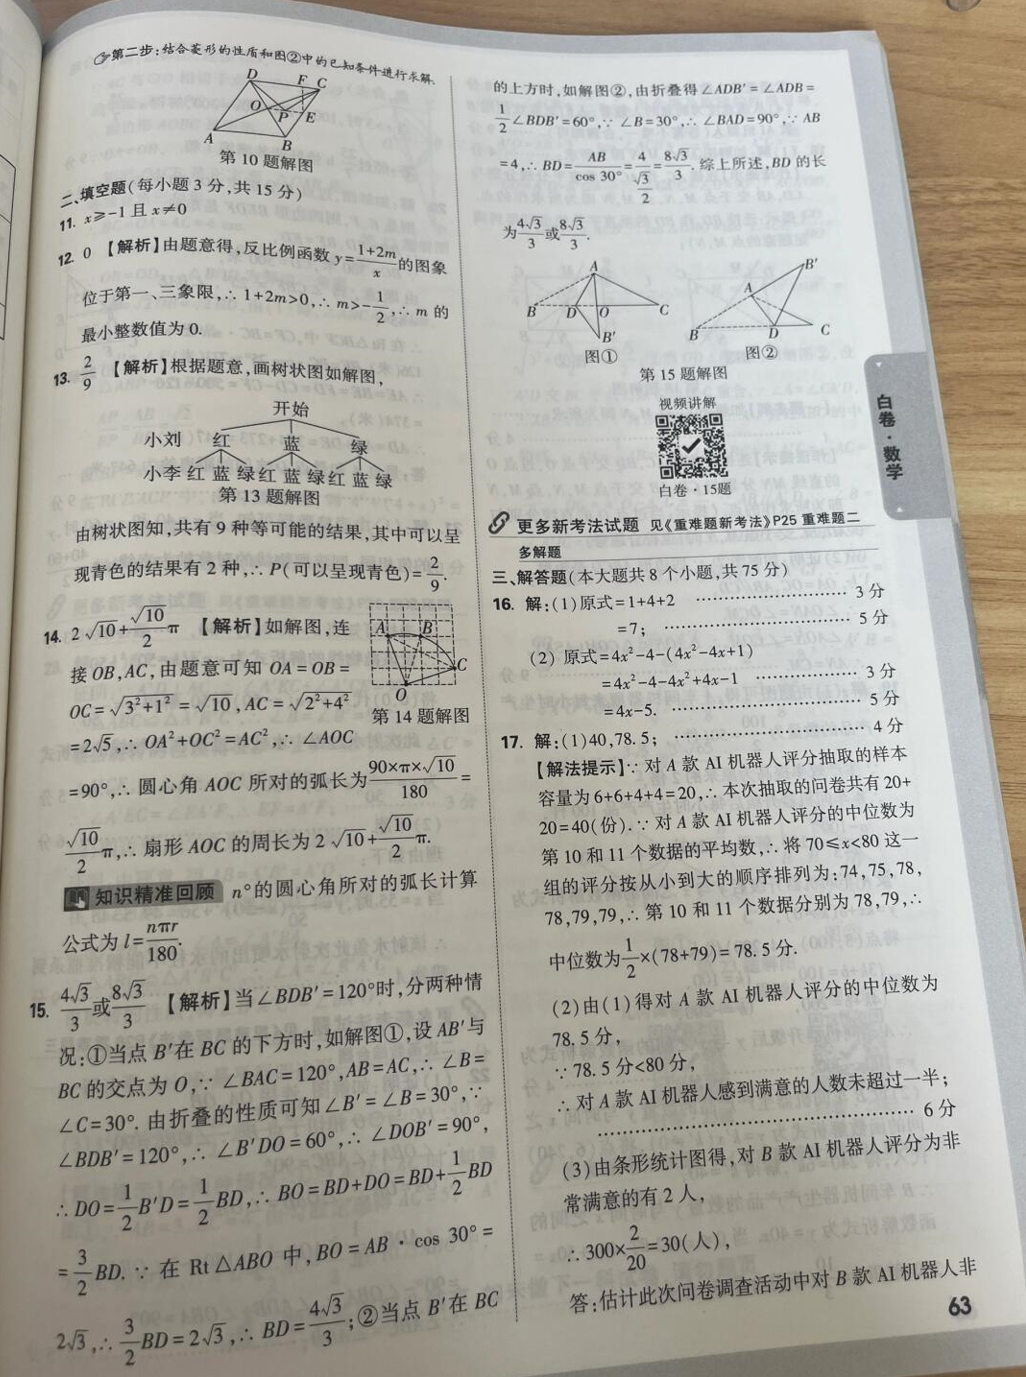 第二步:结合菱形的性质和图②中的已知条件进行求解.
D F C
O P E
A B
第10题解图
二、填空题(每小题3分,共15分)
11. x≥-1且x≠0
12. 0 【解析】由题意得,反比例函数y=\frac{1+2m}{x}的图象
位于第一、三象限,∴1+2m>0,∴m>-\frac{1}{2},∴m的
最小整数值为0.
13. \frac{2}{9} 【解析】根据题意,画树状图如解图,
开始
小刘 红 蓝 绿
小李 红 蓝 绿 红 蓝 绿 红 蓝 绿
第13题解图
由树状图知,共有9种等可能的结果,其中可以呈
现青色的结果有2种,∴P(可以呈现青色)=\frac{2}{9}.
14. 2√10+\frac{√10}{2}π 【解析】如解图,连
接OB,AC,由题意可知OA=OB=
OC=√(3²+1²)=√10,AC=√(2²+4²)
=2√5,∴OA²+OC²=AC²,∴∠AOC
A B
C
O
第14题解图
=90°,∴圆心角AOC所对的弧长为\frac{90×π×√10}{180}=
\frac{√10}{2}π,∴扇形AOC的周长为2√10+\frac{√10}{2}π.
知识精准回顾 n°的圆心角所对的弧长计算
公式为l=\frac{nπr}{180}.
15. \frac{4√3}{3}或\frac{8√3}{3} 【解析】当∠BDB′=120°时,分两种情
况:①当点B′在BC的下方时,如解图①,设AB′与
BC的交点为O,∵∠BAC=120°,AB=AC,∴∠B=
∠C=30°.由折叠的性质可知∠B′=∠B=30°,∵
∠BDB′=120°,∴∠B′DO=60°,∴∠DOB′=90°,
∴DO=\frac{1}{2}B′D=\frac{1}{2}BD,∴BO=BD+DO=BD+\frac{1}{2}BD
=\frac{3}{2}BD.∵在Rt△ABO中,BO=AB·cos 30°=
2√3,∴\frac{3}{2}BD=2√3,∴BD=\frac{4√3}{3};②当点B′在BC
的上方时,如解图②,由折叠得∠ADB′=∠ADB=
\frac{1}{2}∠BDB′=60°,∵∠B=30°,∴∠BAD=90°,∵AB
=4,∴BD=\frac{AB}{cos 30°}=\frac{4}{\frac{√3}{2}}=\frac{8√3}{3}.综上所述,BD的长
为\frac{4√3}{3}或\frac{8√3}{3}.
A
B D O C
B′
图①
B′
A
B D C
图②
第15题解图
视频讲解
白卷·15题
更多新考法试题 见《重难题新考法》P25 重难题二
多解题
三、解答题(本大题共8个小题,共75分)
16. 解:(1)原式=1+4+2 …………………… 3分
=7; …………………… 5分
(2)原式=4x²-4-(4x²-4x+1)
=4x²-4-4x²+4x-1 …………… 3分
=4x-5. …………………… 5分
17. 解:(1)40,78.5; …………………… 4分
【解法提示】∵对A款AI机器人评分抽取的样本
容量为6+6+4+4=20,∴本次抽取的问卷共有20+
20=40(份).∵对A款AI机器人评分的中位数为
第10和11个数据的平均数,∴将70≤x<80这一
组的评分按从小到大的顺序排列为:74,75,78,
78,79,79,∴第10和11个数据分别为78,79,∴
中位数为\frac{1}{2}×(78+79)=78.5分.
(2)由(1)得对A款AI机器人评分的中位数为
78.5分,
∵78.5分<80分,
∴对A款AI机器人感到满意的人数未超过一半;
…………………… 6分
(3)由条形统计图得,对B款AI机器人评分为非
常满意的有2人,
∴300×\frac{2}{20}=30(人),
答:估计此次问卷调查活动中对B款AI机器人非
白卷·数学
63